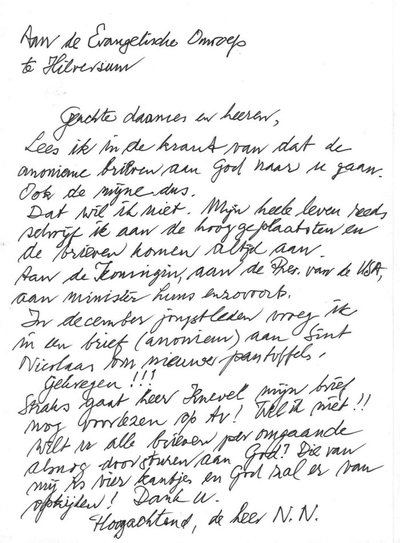 Aan de Evangelische Omroep
te Hilversum
Geachte daames en heeren,
Lees ik in de krant van dat de
anonieme brieven aan God naar u gaan.
Ook de mijne dus.
Dat wil ik niet. Mijn heele leven reeds
schrijf ik aan de hooggeplaatsten en
de brieven komen altijd aan.
Aan de Koningin, aan de Pres. van de USA,
aan minister Luns enzovoort.
In december jongstleden vroeg ik
in een brief (anoniem) aan Sint
Nicolaas om nieuwe pantoffels.
Gekregen !!!
Straks gaat heer Knevel mijn brief
nog voorlezen op tv! Wil ik niet!!
Wilt u alle brieven per omgaande
alsnog doorsturen aan God? Die van
mij is vier kantjes en God zal er van
opkijken! Dank u.
Hoogachtend, de heer N.N.